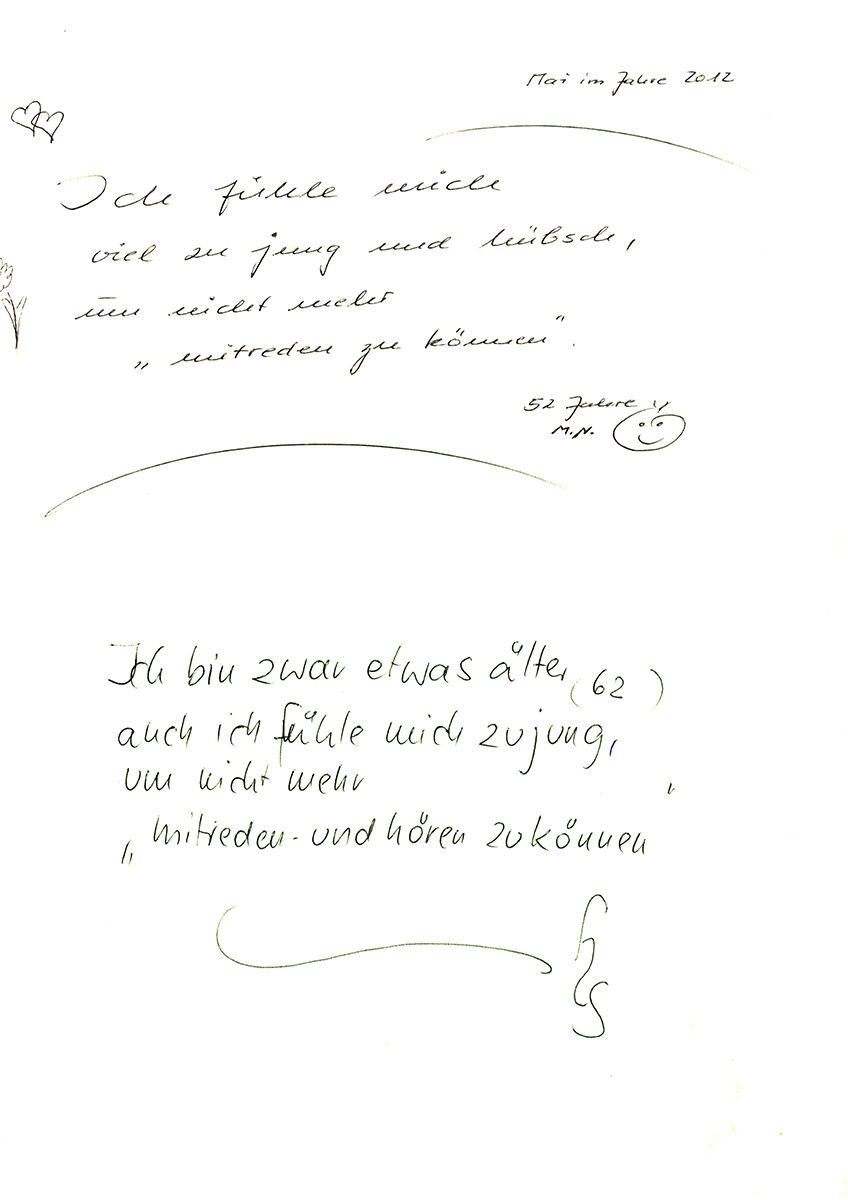 Mai im Jahre 2012
Ich fühle mich
viel zu jung und hübsch,
um nicht mehr
„mitreden zu können“.
52 Jahre
M.N.
Ich bin zwar etwas älter (62)
auch ich fühle mich zu jung,
um nicht mehr
„mitreden- und hören zu können“